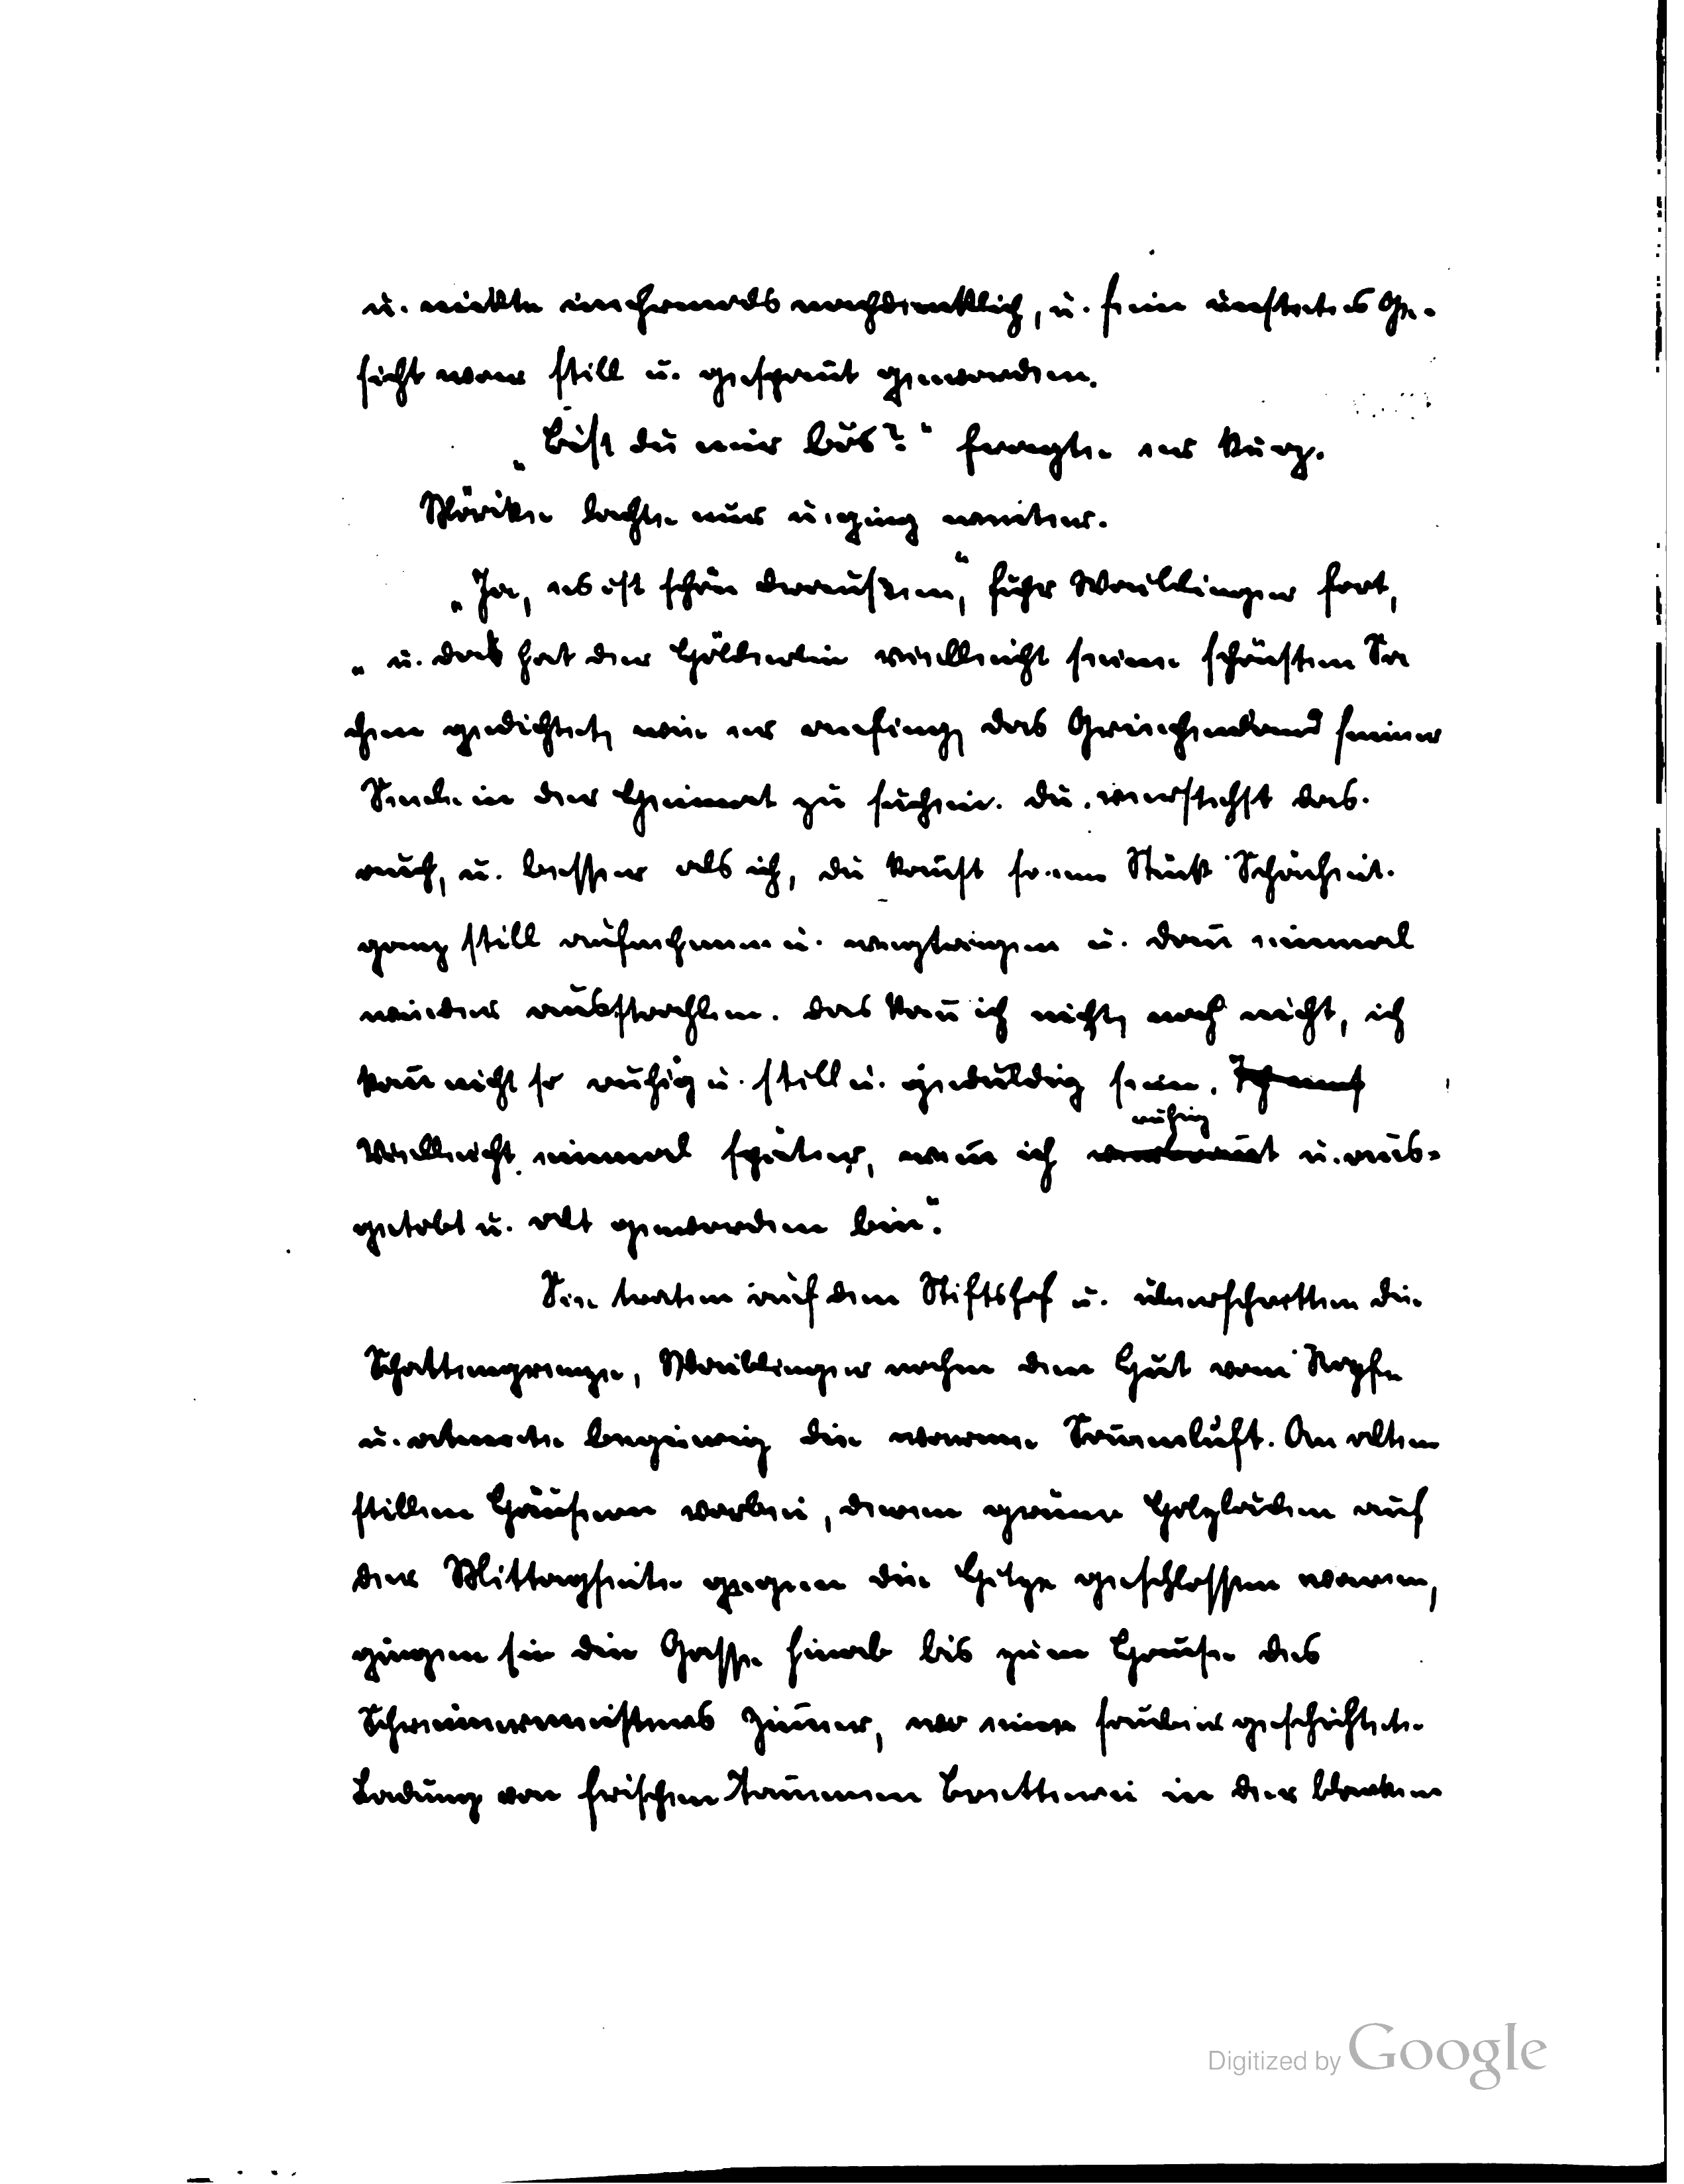 u. nickte mehrmals nachdenklich, u. sein unstetes Ge-
sicht war still u. gespannt geworden.
„Bist du mir bös?“ fragte er kurz.
Mörike lachte nur u. ging weiter.
„Ja, es ist schön draußen“, fuhr Waiblinger fort,
„u. da hat der Hölderlin vielleicht seine schönsten Sa
chen gedichtet, wie er anfing, das Griechenland seiner
Seele in der Heimat zu suchen. Du verstehst das
auch, u. besser als ich, du kannst so ein Stück Schönheit
ganz still aufnehmen u. wegtragen u. dann einmal
wieder ausstrahlen. Das kann ich nicht, noch nicht, ich
kann nicht so ruhig u. still u. geduldig sein. Ich muß
ruhig
Vielleicht einmal später, wenn ich u. aus-
getobt u. alt geworden bin“.
Sie traten auf den Stiftshof u. überschritten die
Schattengrenze, Waiblinger nahm den Hut vom Kopfe
u. atmete begierig die warme Sommerluft. An alten
stillen Häusern vorbei, deren grüne Holzläden auf
der Mittagseite gegen die Hitze geschlossen waren,
gingen sie die Gasse hinab bis zum Hause des
Schreinermeisters Zimmer, wo eine sauber geschichtete
Ladung von frischen tannenen Brettern in der blanken
Digitized by Google